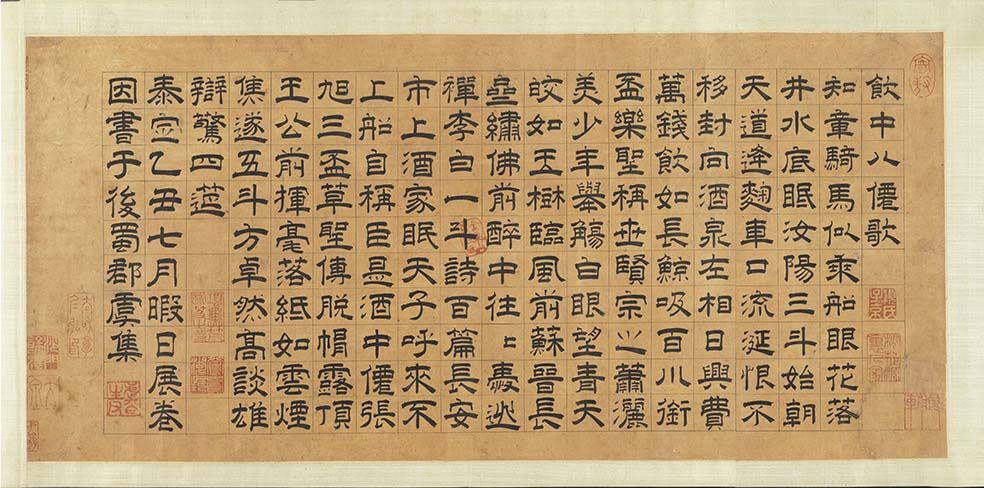 飲中八僊歌
知章騎馬似乘船眼花落
井水底眠汝陽三斗始朝
天道逢麴車口流涎恨不
移封向酒泉左相日興費
萬錢飲如長鯨吸百川銜
盃樂聖稱世賢宗之蕭灑
美少年舉觴白眼望青天
皎如玉樹臨風前蘇晉長
齋繡佛前醉中往〻愛逃
禪李白一斗詩百篇長安
市上酒家眠天子呼來不
上船自稱臣是酒中僊張
旭三盃草聖傳脫帽露頂
王公前揮毫落紙如雲煙
焦遂五斗方卓然高談雄
辯驚四莚
泰定乙丑七月暇日展卷
因書于後蜀郡虞集